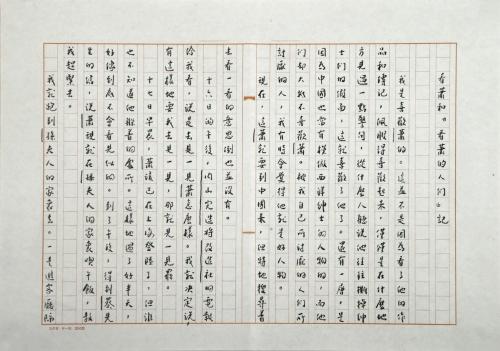 看蕭和「看蕭的人們」記
我是喜歡蕭的。這並不是因為看了他的作
品和傳記,佩服得喜歡起來,僅僅是在什麼地
方見過一點警句,從什麼人聽說他往往撕掉紳
士們的假面,這就喜歡了他了。還有一層,是
因為中國也常有模倣西洋紳士的人物的,而他
們卻大抵不喜歡蕭。被我自己所討厭的人們所
討厭的人,我有時會覺得他就是好人物。
現在,這蕭就要到中國來,但特地搜尋著
去看一看的意思倒也並沒有。
十六日的午後,內山完造將改造社的電報
給我看,說是去見一見蕭怎麼樣。我就決定說,
有這樣地要我去見一見,那就見一見罷。
十七日早晨,蕭該已在上海登陸了,但誰
也不知道他躲著的處所。這樣地過了好半天,
好像到底不會看見似的。到了午後,得到蔡先
生的信,說蕭現就在孫夫人的家裏吃午飯,教
我趕緊去。
我就跑到孫夫人的家裏去。一走進客廳隔